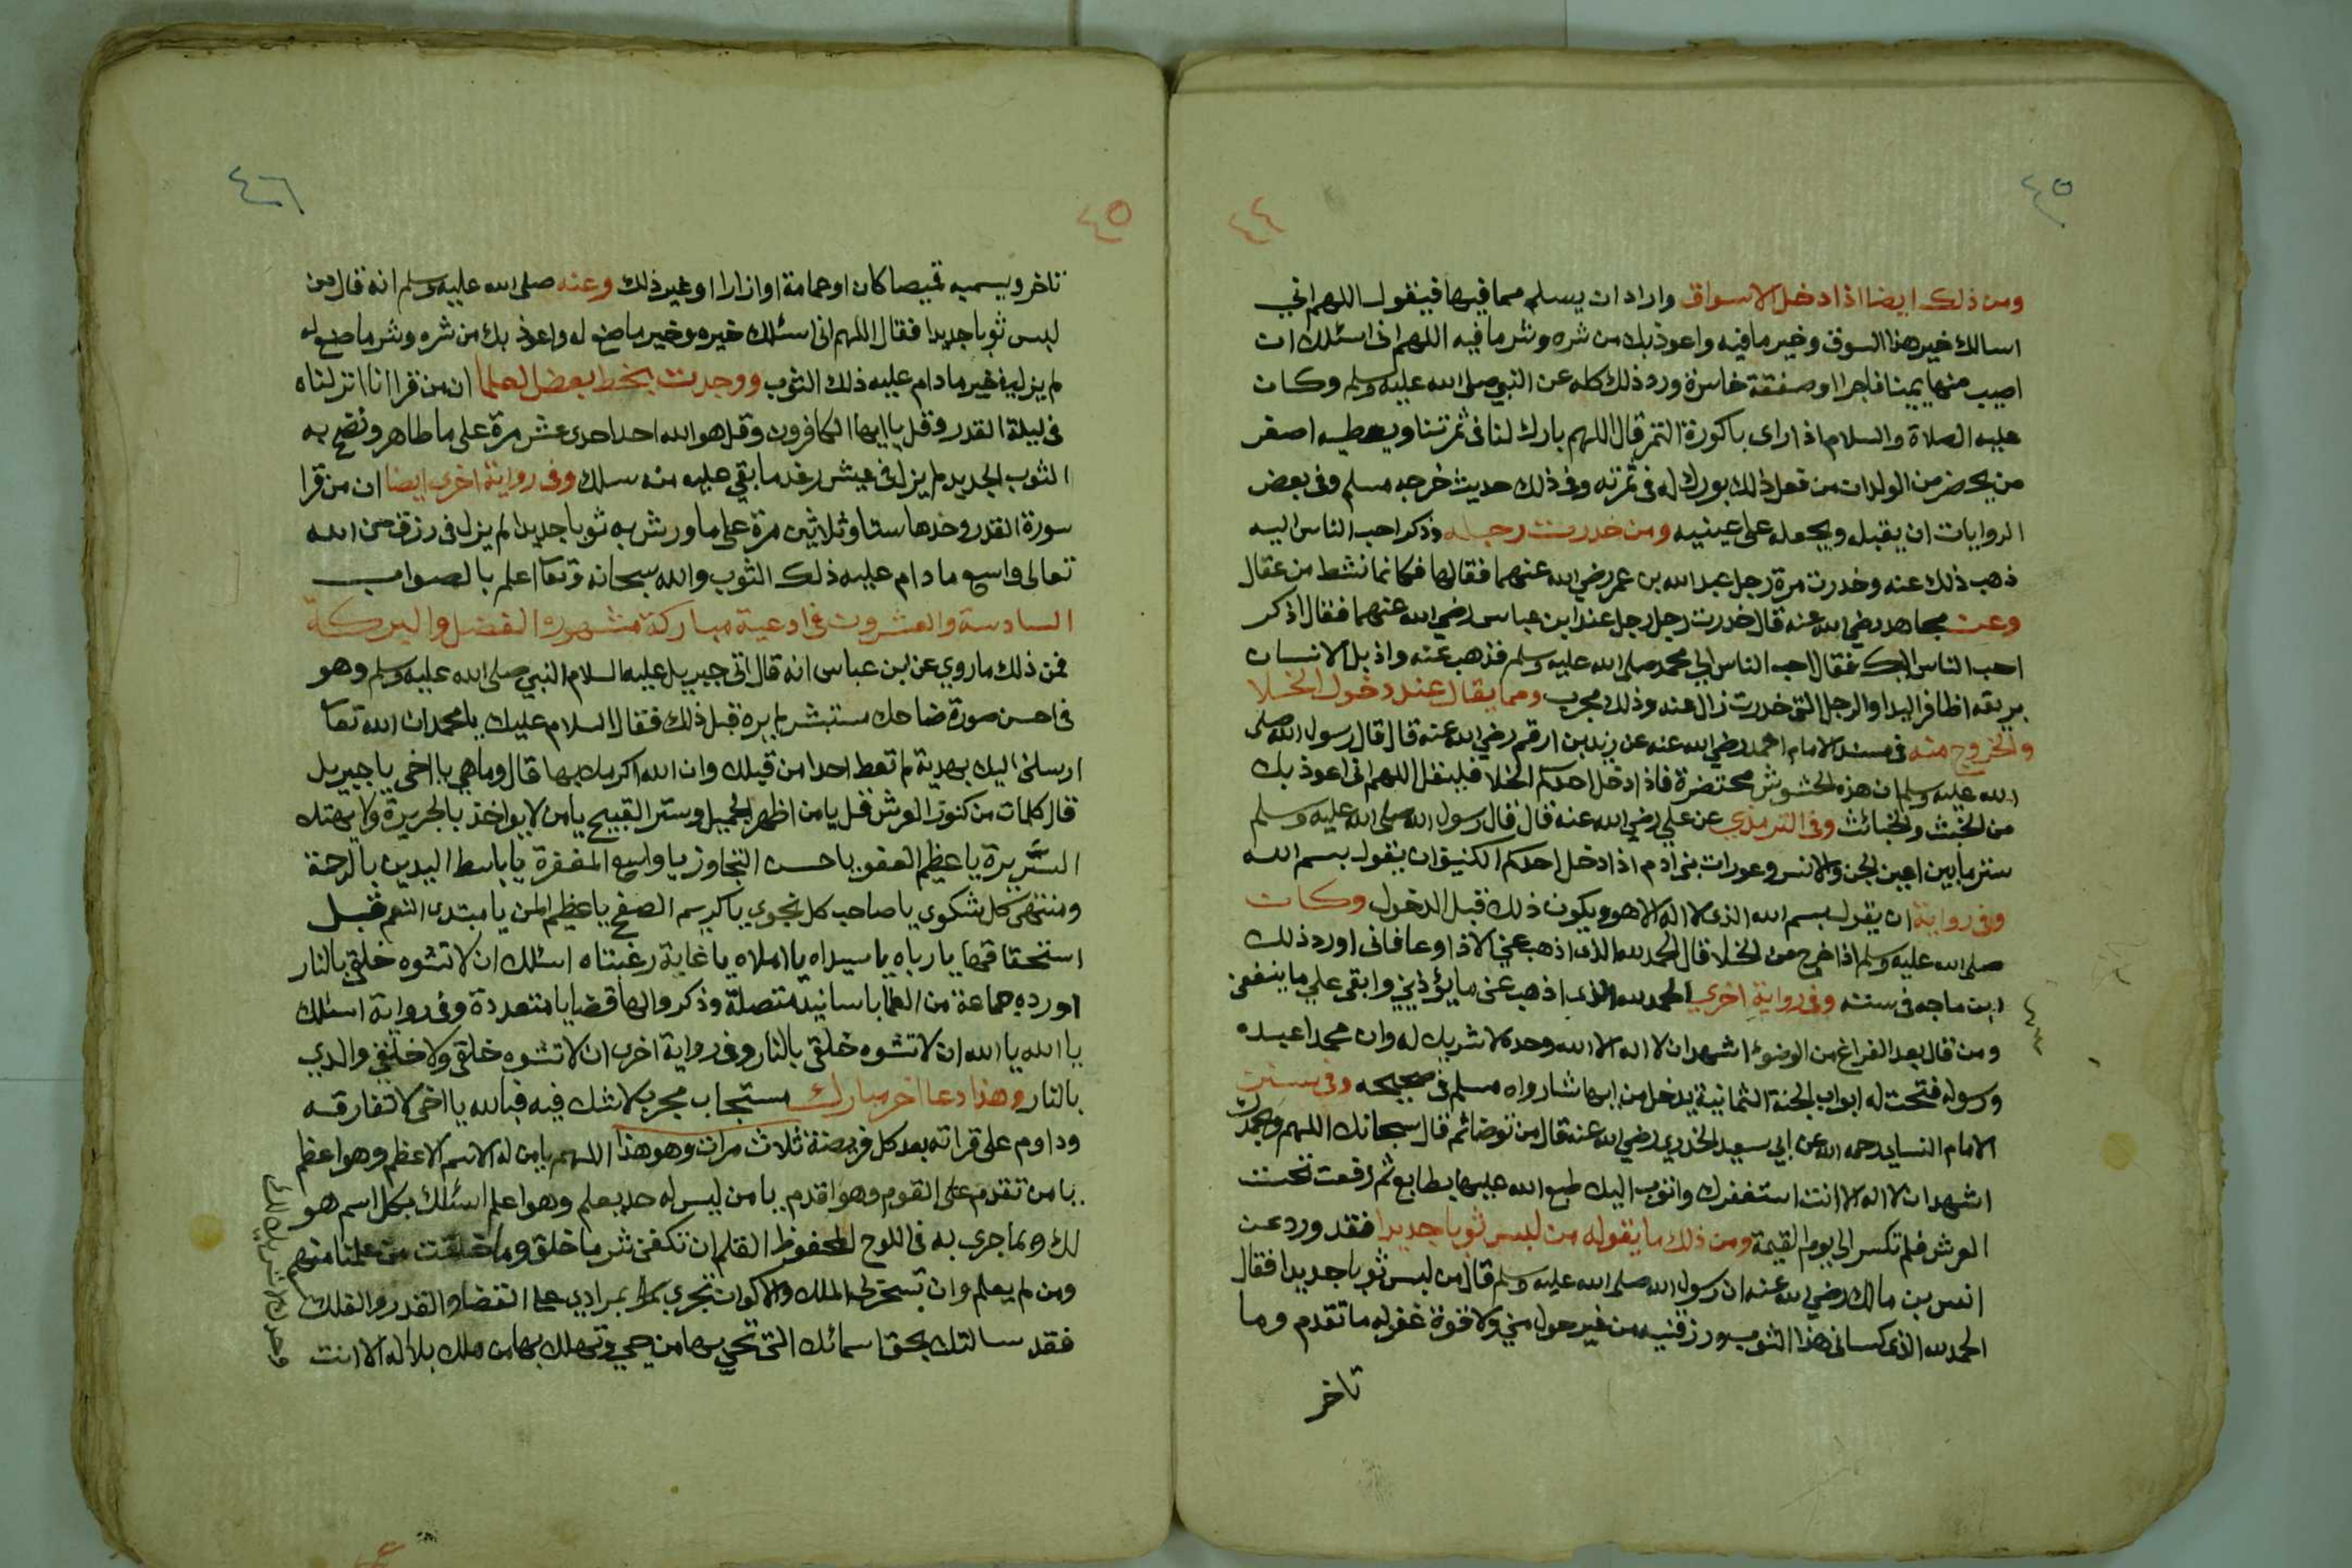 ٤٥
٤٤
ومن ذلك ايضا اذا دخل الاسواق واراد ان يسلم مما فيها فيقول اللهم اني
اسالك خير هذا السوق وخير ما فيه واعوذ بك من شره وشر ما فيه اللهم انى اسئلك ان
اصيب منها يمينا فاجرا او صفقة خاسرة ورد ذلك كله عن النبي صلى الله عليه وسلم وكان
عليه الصلاة والسلام اذا راى باكورة التمر قال اللهم بارك لنا فى ثمرتنا ويعطيه اصغر
من يحضر من الولدان من فعل ذلك بورك له فى ثمرته وفى ذلك حديث خرجه مسلم وفى بعض
الروايات ان يقبله ويجعله على عينيه ومن خدرت رجله وذكر احب الناس اليه
ذهب ذلك عنه وخدرت مرة رجل عبد الله بن عمر رضي الله عنهما فقالها فكانما نشط من عقال
وعن مجاهد رضي الله عنه قال خدرت رجل رجل عند ابن عباس رضي الله عنهما فقال اذكر
احب الناس اليك فقال احب الناس الي محمد صلى الله عليه وسلم فذهب عنه واذ بل الانسان
بريقه اظافر اليد او الرجل التى خدرت زال عنه وذلك مجرب ومما يقال عند دخول الخلا
والخروج منه فى مسند الامام احمد رضي الله عنه عن زيد بن ارقم رضي الله عنه قال قال رسول الله صلى
الله عليه وسلم ان هذه الحشوش محتضرة فاذا دخل احدكم الخلا فليقل اللهم انى اعوذ بك
من الخبث والخبائث وفى الترمذي عن علي رضي الله عنه قال قال رسول الله صلى الله عليه وسلم
ستر ما بين اعين الجن والانس وعورات بنى ادم اذا دخل احدكم الكنيف ان يقول بسم الله
وفى رواية ان يقول بسم الله الذى لا اله الا هو ويكون ذلك قبل الدخول وكان
صلى الله عليه وسلم اذا خرج من الخلا قال الحمد لله الذى اذهب عني الاذا وعافانى اورد ذلك
ابن ماجه فى سننه وفى رواية اخري الحمد لله الذى اذهب عنى ما يؤذيني وابقى علي ما ينفعنى
ومن قال بعد الفراغ من الوضوء اشهد ان لا اله الا الله وحده لا شريك له وان محمدا عبده
ورسوله فتحت له ابواب الجنة الثمانية يدخل من ايها شا رواه مسلم فى صحيحه وفى سنن
الامام النساى رحمه الله عن ابي سعيد الخدري رضي الله عنه قال من توضا ثم قال سبحانك اللهم وبحمدك
اشهد ان لا اله الا انت استغفرك واتوب اليك طبع الله عليها بطابع ثم رفعت تحت
العرش فلم تكسر الى يوم القيمة ومن ذلك ما يقوله من لبس ثوبا جديدا فقد ورد عن
انس بن مالك رضي الله عنه ان رسول الله صلى الله عليه وسلم قال من لبس ثوبا جديدا فقال
الحمد لله الذى كسانى هذا الثوب ورزقنيه من غير حول مني ولا قوة غفر له ما تقدم وما
تاخر
٤٦
٤٥
تاخر ويسميه قميصا كان او عمامة او ازارا او غير ذلك وعنه صلى الله عليه وسلم انه قال من
لبس ثوبا جديدا فقال اللهم انى اسئلك خيره وخير ما صنع له واعوذ بك من شره وشر ما صنع له
لم يزل فى خير ما دام عليه ذلك الثوب ووجدت بخط بعض العلما ان من قرا انا انزلناه
فى ليلة القدر وقل يا ايها الكافرون وقل هو الله احد احدى عشر مرة على ما طاهر ونضح به
الثوب الجديد لم يزل فى عيش رغد ما بقي عليه منه سلك وفى رواية اخرى ايضا ان من قرا
سورة القدر وحدها ستا وثلاثين مرة على ما ورش به ثوبا جديدا لم يزل فى رزق من الله
تعالى واسع ما دام عليه ذلك الثوب والله سبحانه وتعا اعلم بالصواب
السادسة والعشرون فى ادعية مباركة مشهورة الفضل والبركة
فمن ذلك ما روي عن ابن عباس انه قال اتى جبريل عليه السلام النبي صلى الله عليه وسلم وهو
فى احسن صورة ضاحك مستبشر لم يره قبل ذلك فقال السلام عليك يا محمد ان الله تعا
ارسلنى اليك بهدية لم تعط احدا من قبلك وان الله اكرمك بها قال وما هي يا اخى يا جبريل
قال كلمات من كنوز العرش قل يا من اظهر الجميل وستر القبيح يا من لا يواخذ بالجريرة ولا يهتك
السريرة يا عظيم العفو يا حسن التجاوز يا واسع المغفرة يا باسط اليدين بالرحمة
ومنتهى كل شكوى يا صاحب كل نجوى يا كريم الصفح يا عظيم المن يا مبتدى النعم قبل
استحقاقها يا رباه يا سيداه يا املاه يا غاية رغبتاه اسئلك ان لا تشوه خلقي بالنار
اورده جماعة من العلما باسانيد متصلة وذكروا لها قضايا متعددة وفى رواية اسئلك
يا الله يا الله ان لا تشوه خلقى بالنار وفى رواية اخرى ان لا تشوه خلقى ولا خلق والدي
بالنار وهذا دعا اخر مبارك مستجاب مجرب لا شك فيه فبالله يا اخى لا تفارقه
وداوم على قراته بعد كل فريضة ثلاث مرات وهو هذا اللهم يا من له الاسم الاعظم وهو اعظم
يا من تقدم على القوم وهو اقدم يا من ليس له حد يعلم وهو اعلم اسئلك بكل اسم هو
لك وبما جرى به فى اللوح المحفوظ القلم ان تكفنى شر ما خلق وما خلقت من علمنا منهم
ومن لم يعلم وان تسخر لى الملك والاكوان تجري كل بمرادي على القضا والقدر والفلك
فقد سالتك بحق اسمائك التى تحي بها من حي وتهلك بها من هلك بلا اله الا انت